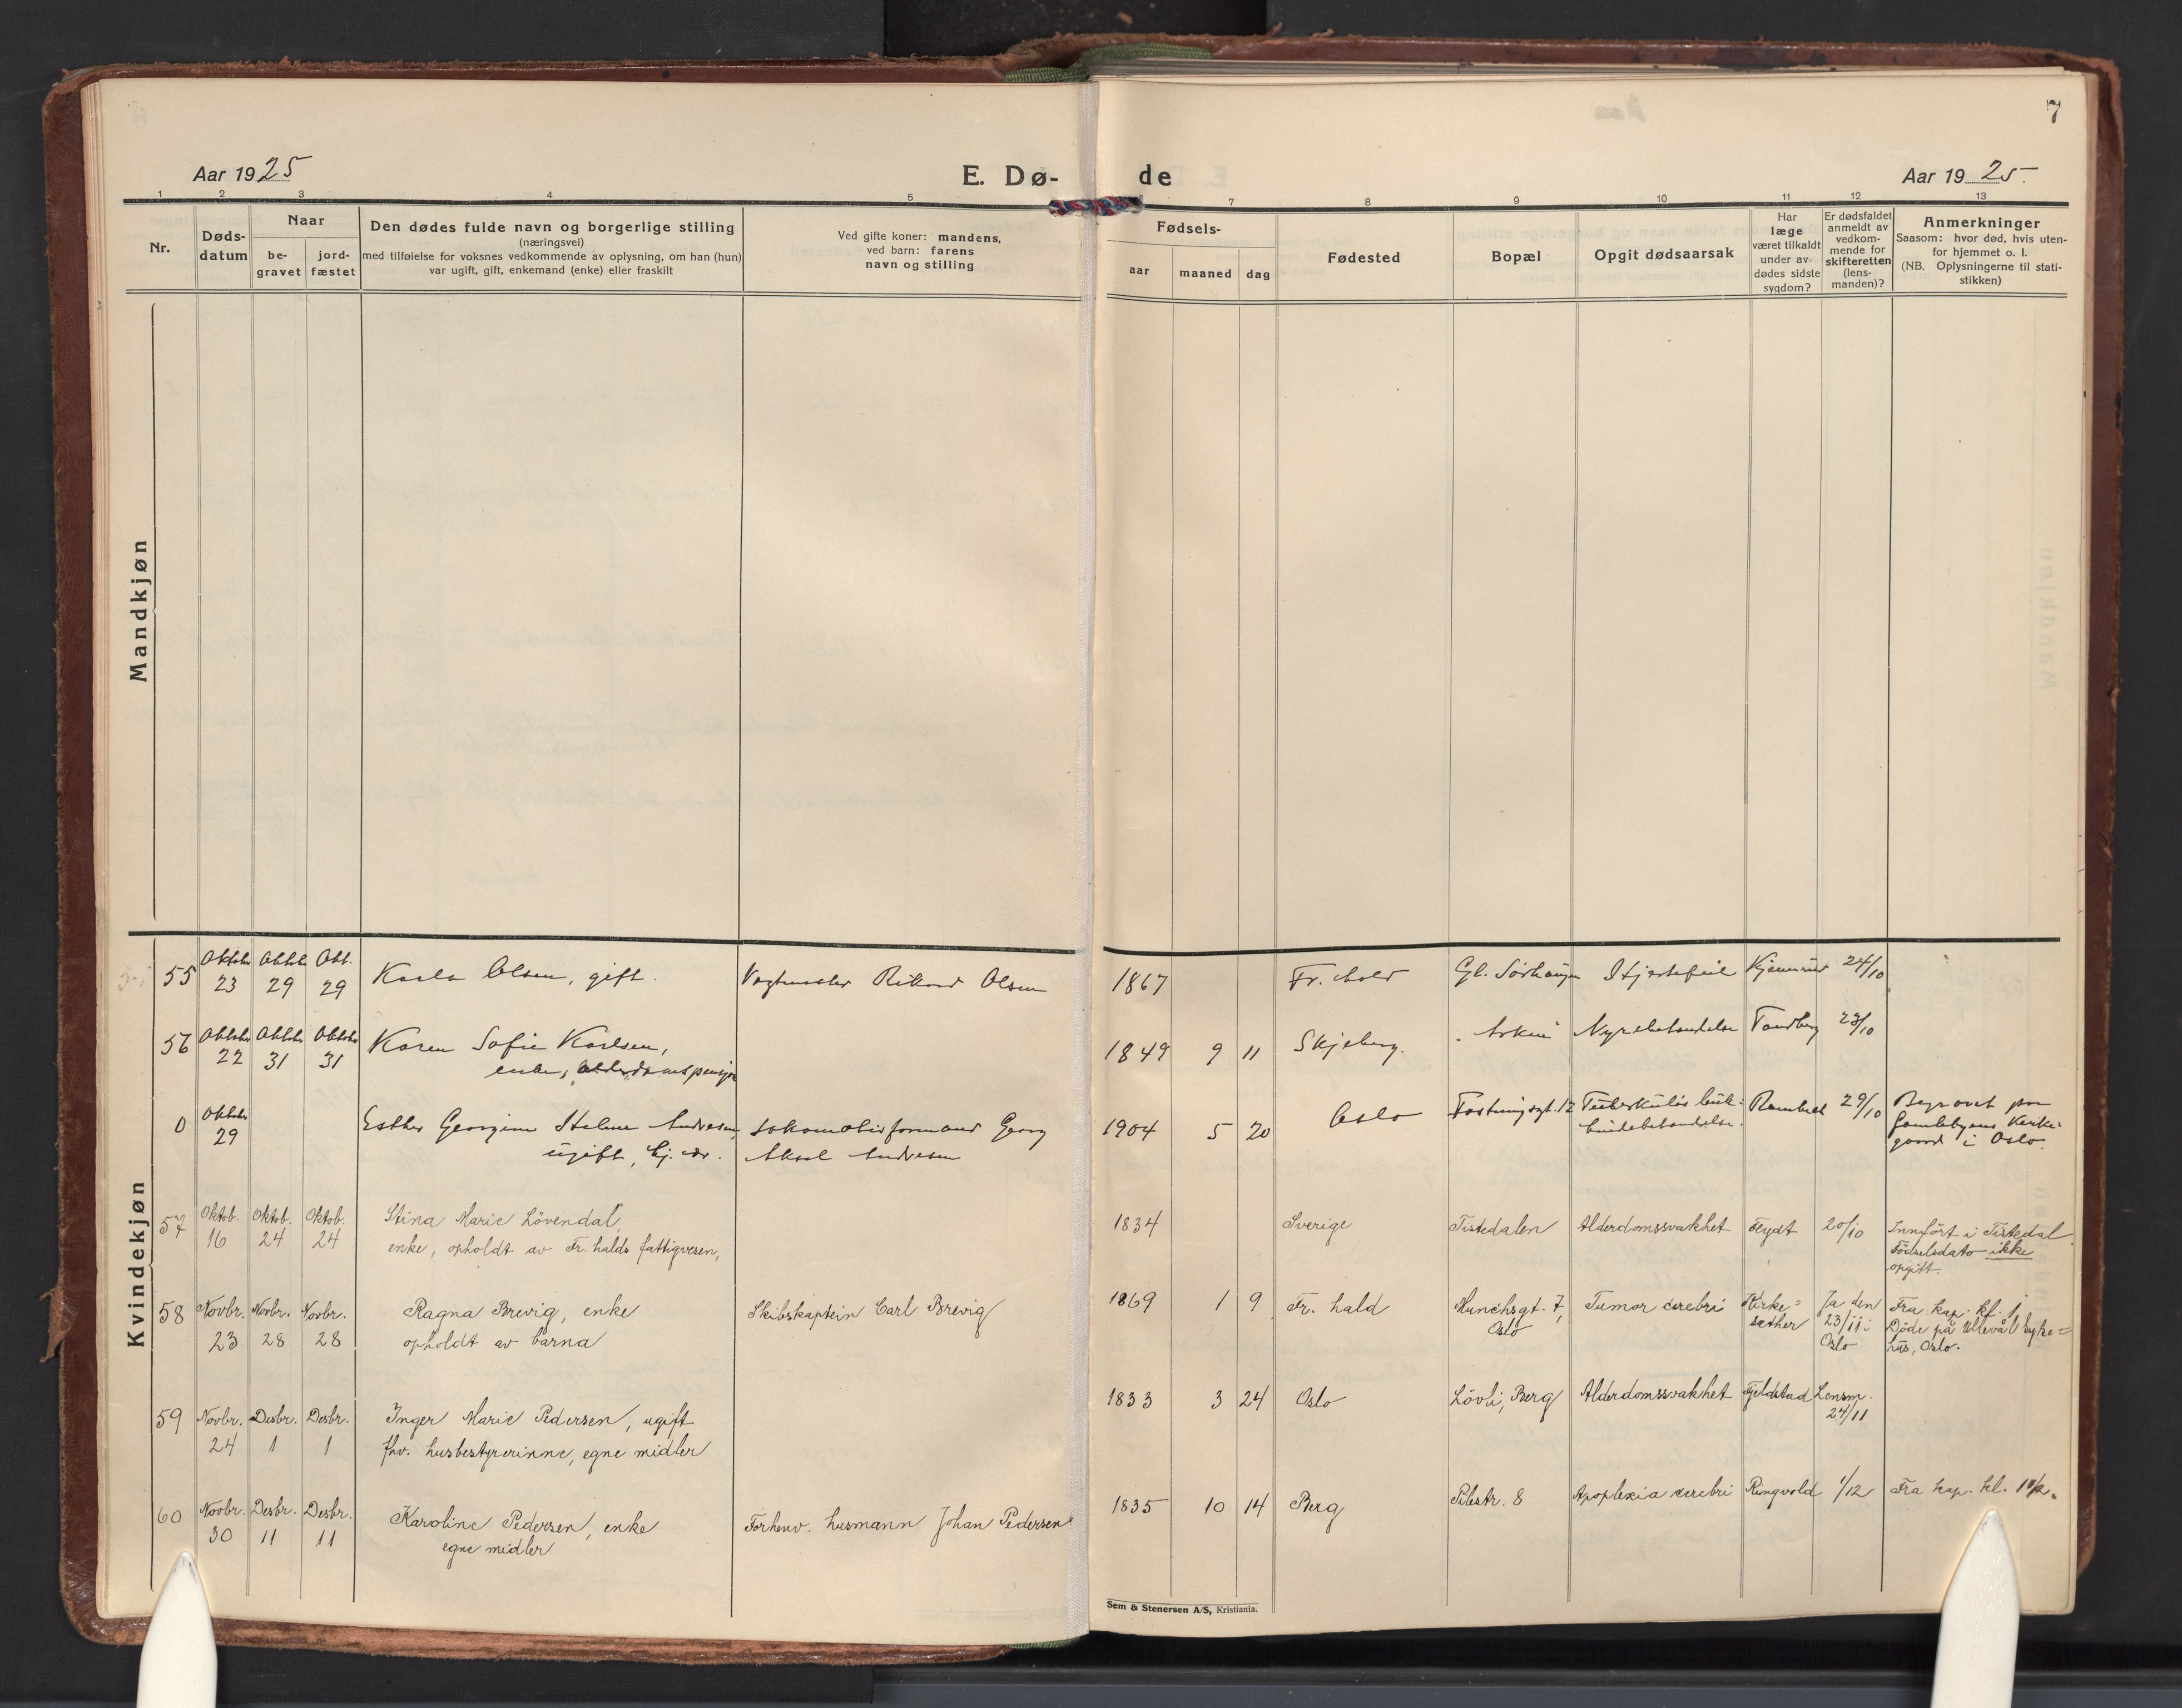 7
Aar 1925
E. Dø-
de
Aar 1925.
1 2 3 4 5 7 8 9 10 11 12 13
Nr.
Døds-
datum
Naar
be-
gravet
jord-
fæstet
Den dødes fulde navn og borgerlige stilling
(næringsvei)
med tilføielse for voksnes vedkommende av oplysning, om han (hun)
var ugift, gift, enkemand (enke) eller fraskilt
Ved gifte koner: mandens,
ved barn: farens
navn og stilling
Fødsels-
aar maaned dag
Fødested
Bopæl
Opgit dødsaarsak
Har
læge
været tilkaldt
under av-
dødes sidste
sygdom?
Er dødsfaldet
anmeldt av
vedkom-
mende for
skifteretten
(lens-
manden)?
Anmerkninger
Saasom: hvor død, hvis uten-
for hjemmet o. l.
(NB. Oplysningerne til stati-
stikken)
Mandkjøn
Kvindekjøn
55 Oktober 23 Oktbr 29 Okt. 29 Karla Olsen, gift. Vagtmester Rikard Olsen 1867 Fr. hald Gl. Sørhaugen Hjertefeil 24/10
56 Oktober 22 Oktober 31 Oktober 31 Karen Sofie Karlsen, 1849 9 11 Skjeberg. Nyrebetendelse Tandberg 23/10
enke, alderdomspensjon
0 Oktober 29 Esther Georgine Helene Andresen, Lokomotivformand Georg 1904 5 20 Oslo Fæstningsgt. 12 Tuberkuløs buk- Rambøl 29/10 Begravet paa
ugift, hj. vær. Aksel Andresen hindebetendelse. Gamlebyens Kirke-
gaard i Oslo.
57 Oktob. 16 Oktob. 24 Oktob. 24 Stina Marie Lövendal, 1834 Sverige Tistedalen Alderdomssvakhet Feydt 20/10 Innfört i Tistedal.
enke, opholdt av Fr. halds fattigvesen, Födselsdato ikke
opgitt.
58 Novbr. 23 Novbr. 28 Novbr. 28 Ragna Brevig, enke Skibskaptein Carl Brevig 1869 1 9 Fr. hald Munchsgt. 7, Tumor cerebri Kirke= Ja den Fra kap. kl. 1
opholdt av barna Oslo sæther 23/11 i Döde på Ullevål syke=
Oslo hus, Oslo.
59 Novbr. 24 Desbr. 1 Desbr. 1 Inger Marie Pedersen, ugift 1833 3 24 Oslo Lövli, Berg Alderdomssvakhet Fjeldstad Lensm.
fhv. husbestyrerinne, egne midler 24/11
60 Novbr. 30 Desbr. 11 Desbr. 11 Karoline Pedersen, enke Forhenv. husmann Johan Pedersen 1835 10 14 Berg Pilestr. 8 Apoplexia cerebri Ringvold 1/12 Fra kap. kl.
egne midler
Sem & Stenersen A/S, Kristiania.